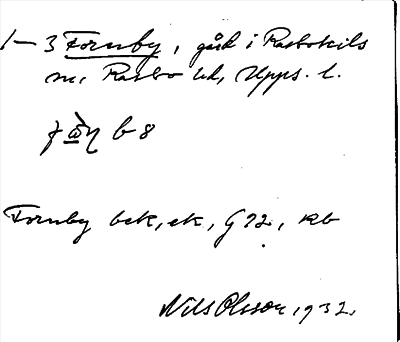 1–3 Fornby, gård i Rasbokils
sn, Rasbo hd, Upps. l.
b 8
Fornby bek, ek, G 72, Rb
Nils Olsson, 1932.